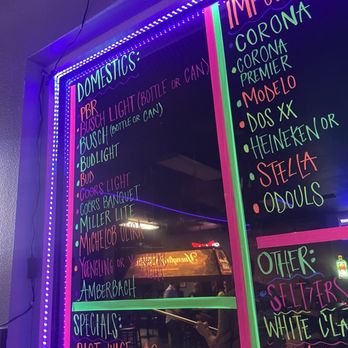 DOMESTICS:
PBR
BUSCH LIGHT (BOTTLE OR CAN)
BUSCH (BOTTLE OR CAN)
BUDLIGHT
BUD
COORS LIGHT
COORS BANQUET
MILLER LITE
MICHELOB ULTRA
YUENGLING OR
AMBERBACH
SPECIALS:
CORONA
CORONA
PREMIER
MODELO
DOS XX
HEINEKEN OR
STELLA
ODOULS
OTHER:
SELTZERS
WHITE CLA
Yuengling